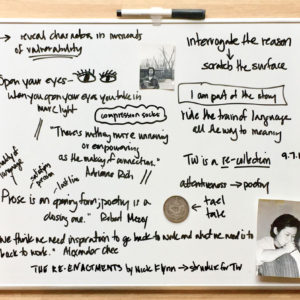 → reveal characters in moments
of vulnerability
Open your eyes →
When you open your eyes you take in
more light
compression socks
"There is nothing more unnerving
or empowering
as the making of connections."
Adrienne Rich
Prose is an opening form; poetry is a
closing one." Robert Hass
We think we need inspiration to go back to work and what we need is to
go back to work." Alexander Chee
THE RE-ENACTMENTS by Nick Flynn → structure for TW
Interrogate the reason
scratch the surface
I am part of the story
ride the train of language
all the way to meaning
TW is a re-collection
9.7.1
attentiveness → poetry
tael
tale